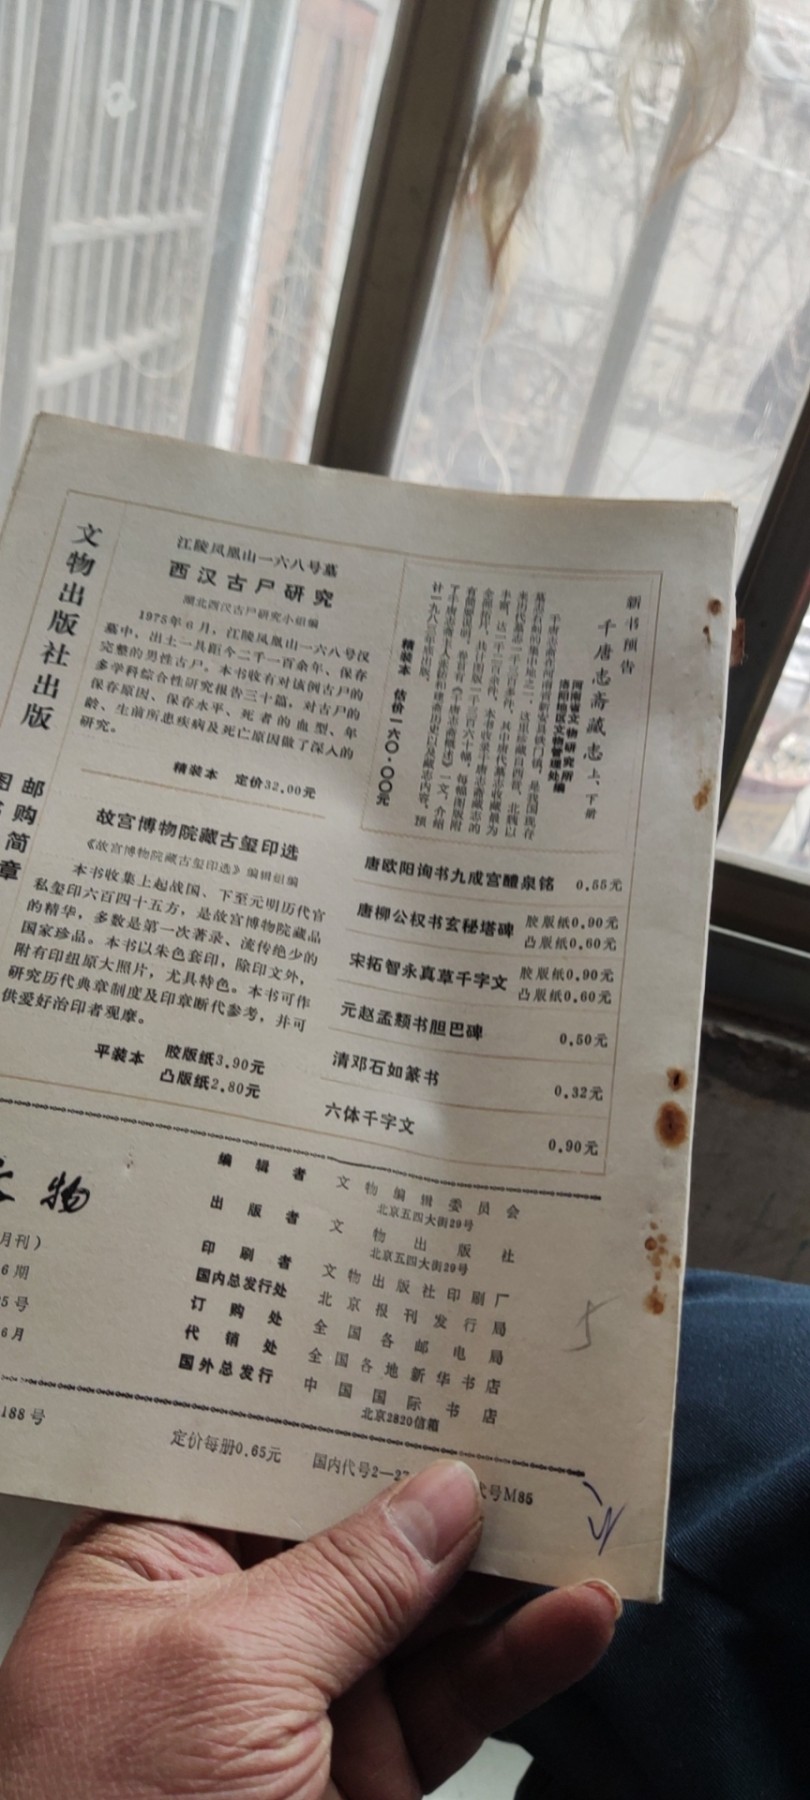 文物出版社出版
邮购
简章
江陵凤凰山一六八号墓
西汉古尸研究
湖北西汉古尸研究小组编
1975年6月，江陵凤凰山一六八号汉
墓中，出土一具距今二千一百余年、保存
完整的男性古尸。本书收有对该例古尸的
多学科综合性研究报告三十篇，对古尸的
保存原因、保存水平、死者的血型、年
龄、生前所患疾病及死亡原因做了深入的
研究。
精装本 定价32.00元
故宫博物院藏古玺印选
《故宫博物院藏古玺印选》编辑组编
本书收集上起战国、下至元明历代官
私玺印六百四十五方，是故宫博物院藏品
的精华，多数是第一次著录、流传绝少的
国家珍品。本书以朱色套印，除印文外，
附有印纽原大照片，尤具特色。本书可作
研究历代典章制度及印章断代参考，并可
供爱好治印者观摩。
平装本 胶版纸3.90元
凸版纸2.80元
新书预告
千唐志斋藏志 上、下册
河南省文物研究所
洛阳地区文物管理处编
千唐志斋在河南省新安县铁门镇，是我国现存
墓志石刻的集中地之一，这里珍藏自西晋、北魏以
来历代墓志一千三百多件，其中唐代墓志收藏最为
丰富，达一千二百余件。本书收录千唐志斋藏志的
针一九八三年底出版。
精装本 估价一六〇·〇〇元
唐欧阳询书九成宫醴泉铭 0.55元
唐柳公权书玄秘塔碑 胶版纸0.90元
凸版纸0.60元
宋拓智永真草千字文 胶版纸0.90元
凸版纸0.60元
元赵孟頫书胆巴碑 0.50元
清邓石如篆书 0.32元
六体千字文 0.90元
物
月刊）
6期
5号
6月
编辑者 文物编辑委员会
北京五四大街29号
出版者 文物出版社
北京五四大街29号
印刷者 文物出版社印刷厂
国内总发行处 北京报刊发行局
订购处 全国各邮电局
代销处 全国各地新华书店
国外总发行 中国国际书店
北京2820信箱
188号
定价每册0.65元 国内代号2—27 代号M85
5